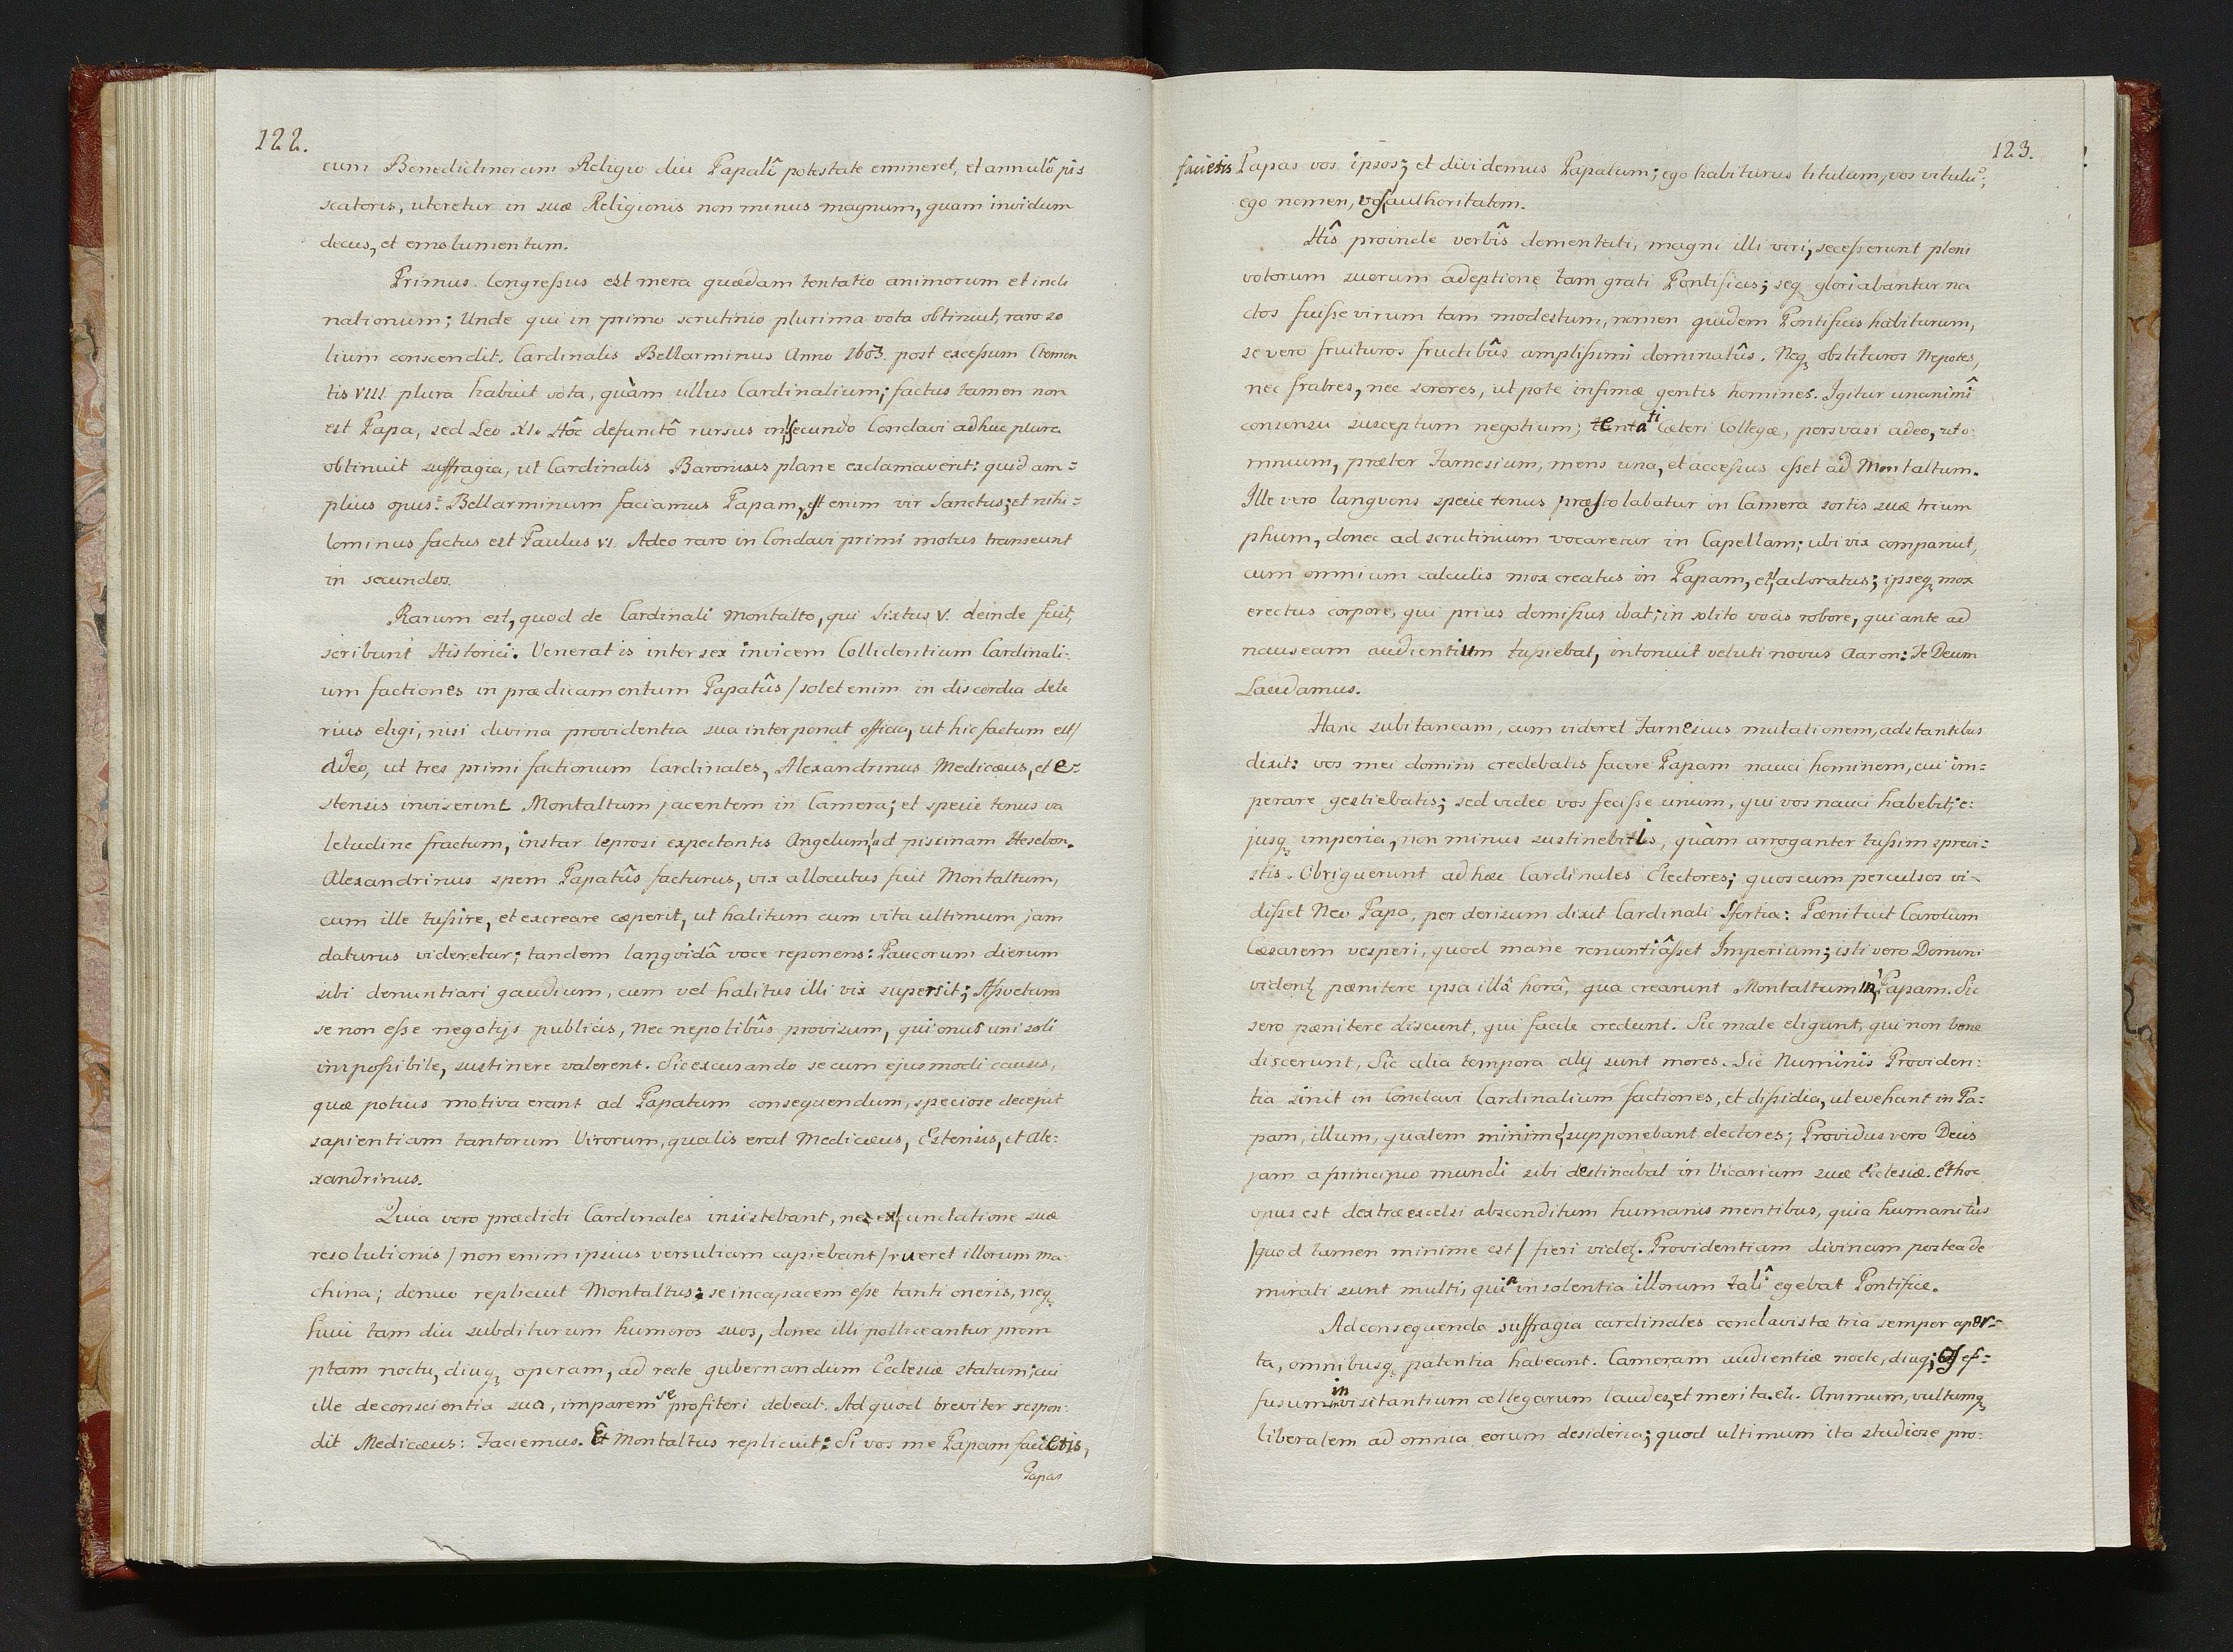 122.
cum Benedictinorum Religio diu Papalî potestate emineret, et annulô pis
scatoris, uteretur in suæ Religionis non minus magnum, quam invidum
decus, et emolumentum.
Primus Congressus est mera quædam tentatio animorum et incli
nationum; Unde qui in primo scrutinio plurima vota obtinuit, raro so
lium conscendit. Cardinalis Bellarminus Anno 1603. post excessum Clemen
tis VIII plura habuit vota, quàm ullus Cardinalium; factus tamen non
est Papa, sed Leo XI. Hôc defunctô rursus in secundo Conclavi adhuc plura
obtinuit suffragia, ut Cardinalis Baronius plane exclamaverit: quid am=
plius opus: Bellarminum faciamus Papam, est enim vir Sanctus; et nihi=
lominus factus est Paulus VI. Adeo raro in Conclavi primi motus transeunt
in secundos.
Rarum est, quod de Cardinali Montalto, qui Sixtus V. deinde fuit,
scribunt Historici. Venerat is inter sex invicem Collidentium Cardinali=
um factiones in prædicamentum Papatûs / solet enim in discordia dete
rius eligi, nisi divina providentia sua interponat officia, ut hic factum est /
Adeo, ut tres primi factionum Cardinales, Alexandrinus Medicæus, et e=
stensis inviserint Montaltum jacentem in Camera; et specie tenus va
letudine fractum, instar leprosi expectantis Angelum ad piscinam Hesebon.
Alexandrinus spem Papatûs facturus, vix allocutus fuit Montaltum,
cum ille tussire, et excreare cæperit, ut halitum cum vita ultimum jam
daturus videretur; tandem langvidâ voce reponens: Paucorum dierum
sibi denuntiari gaudium, cum vel halitus illi vix supersit; Assvetum
se non esse negotijs publicis, nec nepotibûs provisum, qui onus uni soli
impossibile, sustinere valerent. Sic excusando se cum ejusmodi causis,
quæ potius motiva erant ad Papatum consequendum, speciose decepit
sapientiam tantorum Virorum, qualis erat Medicæus, Estensis, et Ale=
xandrinus.
Quia vero prædicti Cardinales insistebant, ne ex cunctatione suæ
resolutionis / non enim ipsius versutiam capiebant / rueret illorum ma
china; denuo replicuit Montaltus: se incapacem esse tanti oneris, neq
huic tam diu subditurum humeros suos, donec illi polliceantur prom
ptam noctu, diuq operam, ad recte gubernandum Ecclesiæ statum; cui
ille de conscientia sua, imparem se profiteri debeat. Ad quod breviter respon=
dit Medicæus: Faciemus. Et Montaltus replicuit: Si vos me Papam facietis,
Papas
123.
facietis Papas vos ipsos; et dividemus Papatum; ego habiturus titulum, vos vitulũ;
ego nomen, vos authoritatem.
Hîs proinde verbîs dementati, magni illi viri, secesserunt pleni
votorum suorum adeptione tam grati Pontificis; seq gloriabantur na
ctos fuisse virum tam modestum, nomen quidem Pontificis habiturum,
se vero fruituros fructibûs amplissimi dominatûs. Neq obstituros Nepotes,
nec fratres, nec sorores, ut pote infimæ gentis homines. Igitur unanimî
consensu susceptum negotium; tentati Cæteri Collegæ, persvasi adeo, ut o
mnium, præter Farnesium, mens una, et accessus esset ad Montaltum.
Ille vero langvens specie tenus præstolabatur in Camera sortis suæ trium
phum, donec ad scrutinium vocaretur in Capellam; ubi vix comparuit,
cum omnium calculis mox creatus in Papam, et adoratus; ipseq mox
erectus corpore, qui prius demissus ibat; in solito vocis robore, qui ante ad
nauseam audientium tussiebat, intonuit veluti novus Aaron: Te Deum
Laudamus.
Hanc subitaneam, cum videret Farnesius mutationem, adstantibus
dixit: vos mei domini credebatis facere Papam nauci hominem, cui im=
perare gestiebatis; sed video vos fecisse unum, qui vos nauci habebit, e=
jusq imperia, non minus sustinebitis, quàm arroganter tussim sprevi=
stis. Obriguerunt ad hæc Cardinales Electores; quos cum perculsos vi=
disset Neo Papa, per derisum dixit Cardinali Sfortia: Pænituit Carolum
Cæsarem vesperi, quod mane renuntiâsset Imperium; isti vero Domini
vident pænitere ipsa illâ horâ, qua crearunt Montaltum in Papam. Sic
sero pænitere discunt, qui facile credunt. Sic male eligunt, qui non bene
discernunt, Sic alia tempora alij sunt mores. Sic Numinis Providen=
tia sinit in Conclavi Cardinalium factiones, et dissidia, ut evehant in Pa=
pam, illum, qualem minimè supponebant electores; Providus vero Deus
jam a principio mundi sibi destinabat in Vicarium suæ Ecclesiæ. Et hoc
opus est dextræ excelsi absconditum humanis mentibus, quia humanitùs
/ quod tamen minime est / fieri videt. Providentiam divinam postea de
mirati sunt multi, quia insolentia illorum talî egebat Pontifice.
Ad consequenda suffragia cardinales conclavistæ tria semper aper=
ta, omnibusq patentia habeant. Cameram audientiæ nocte, diuq; Os ef=
fusum in visitantium collegarum laudes, et merita. etc. Animum, vultumq
liberalem ad omnia eorum desideria; quod ultimum ita studiose pro=